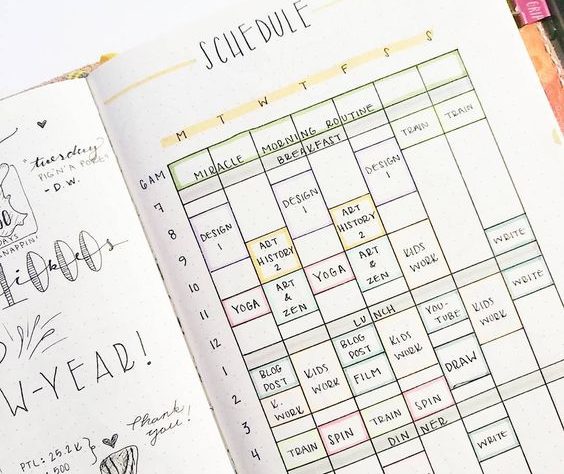 "tuesday
PIGN'A POPE"
- D.W.
DAYS
SNAPPIN'
likes
1000
W-YEAR!
Thank
you!
PTL: 25.2K
500
SCHEDULE
M T W T F S S
6AM MIRACLE MORNING ROUTINE
BREAKFAST
TRAIN TRAIN
7
DESIGN 1
DESIGN 1
8
DESIGN 1
ART HISTORY 2
9
ART HISTORY 2
WRITE
10
ART & ZEN
YOGA
ART & ZEN
KIDS WORK
WRITE
11
YOGA
12
LUNCH
YOU-TUBE
KIDS WORK
1
BLOG POST
KIDS WORK
BLOG POST
KIDS WORK
2
K. WORK
FILM
DRAW
3
TRAIN
SPIN
TRAIN
SPIN
4
DINNER
WRITE